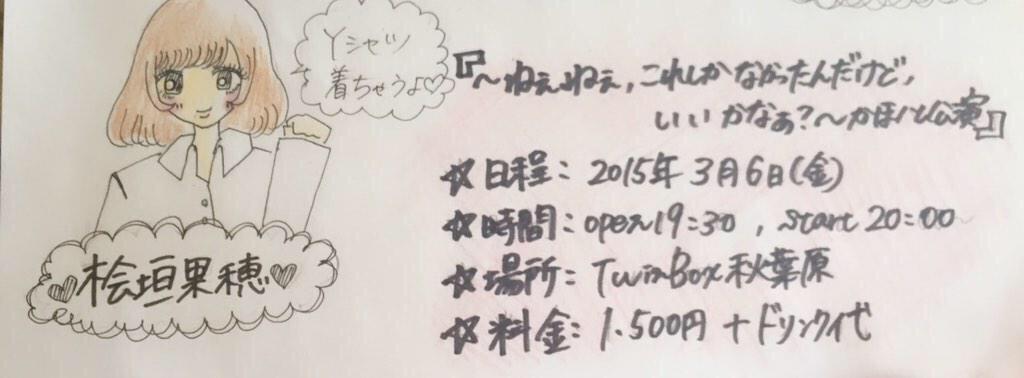 Yシャツ
着ちゃうょ♡
『～ねぇねぇ,これしかなかったんだけど,
いいかなぁ?～かほ公演』
☆日程:2015年3月6日(金)
☆時間:open19:30,start20:00
☆場所:TwinBox秋葉原
☆料金:1.500円+ドリンク代
♥桧垣果穂♥